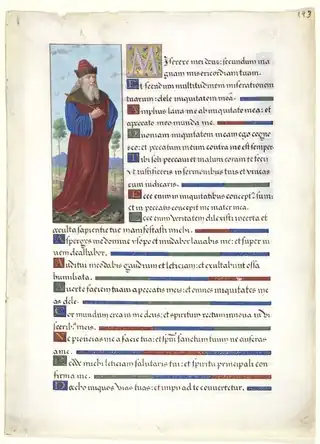 Miserere mei deus: secundum ma
gnam misericordiam tuam.
Et secundum multitudinem miserationem
tuarum: dele iniquitatem meā.
Amplius laua me ab iniquitate mea: et
a peccato meo munda me.
Quoniam iniquitatem meam ego cogno
sco: et peccatum meum contra me est semper
Tibi soli peccaui et malum coram te feci
vt iustificeris in sermonibus tuis et vincas
cum iudicaris.
Ecce enim in iniquitatibus conceptꝰ sum:
et in peccatis concepit me mater mea.
Ecce enim veritatem dilexisti incerta et
occulta sapientie tue manifestasti michi.
Asperges me domine ysopo et mundabor lauabis me: et super ni
uem dealbabor.
Auditui meo dabis gaudium et leticiam: et exultabunt ossa
humiliata.
Auerte faciem tuam a peccatis meis: et omnes iniquitates me
as dele.
Cor mundum crea in me deus: et spiritum rectum innoua in vi
sceribꝰ meis.
Ne proiicias me a facie tua: et spm̄ sanctum tuum ne auferas
a me.
Redde michi leticiam salutaris tui: et spiritu principali con
firma me.
Docebo iniquos vias tuas: et impii ad te conuertētur.